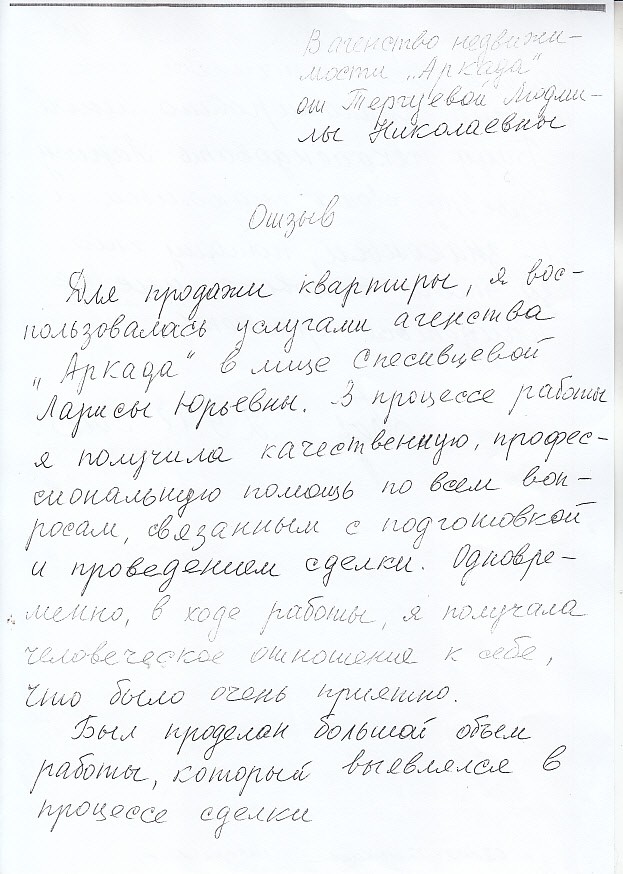 В агенство недвижи-
мости „Аркада"
от Тергуевой Людми-
лы Николаевны
Отзыв
Для продажи квартиры, я вос-
пользовалась услугами агенства
„Аркада" в лице Спесивцевой
Ларисы Юрьевны. В процессе работы
я получила качественную, профес-
сиональную помощь по всем воп-
росам, связанным с подготовкой
и проведением сделки. Одновре-
менно, в ходе работы, я получала
человеческое отношение к себе,
что было очень приятно.
Был проделан большой объем
работы, который выявлялся в
процессе сделки